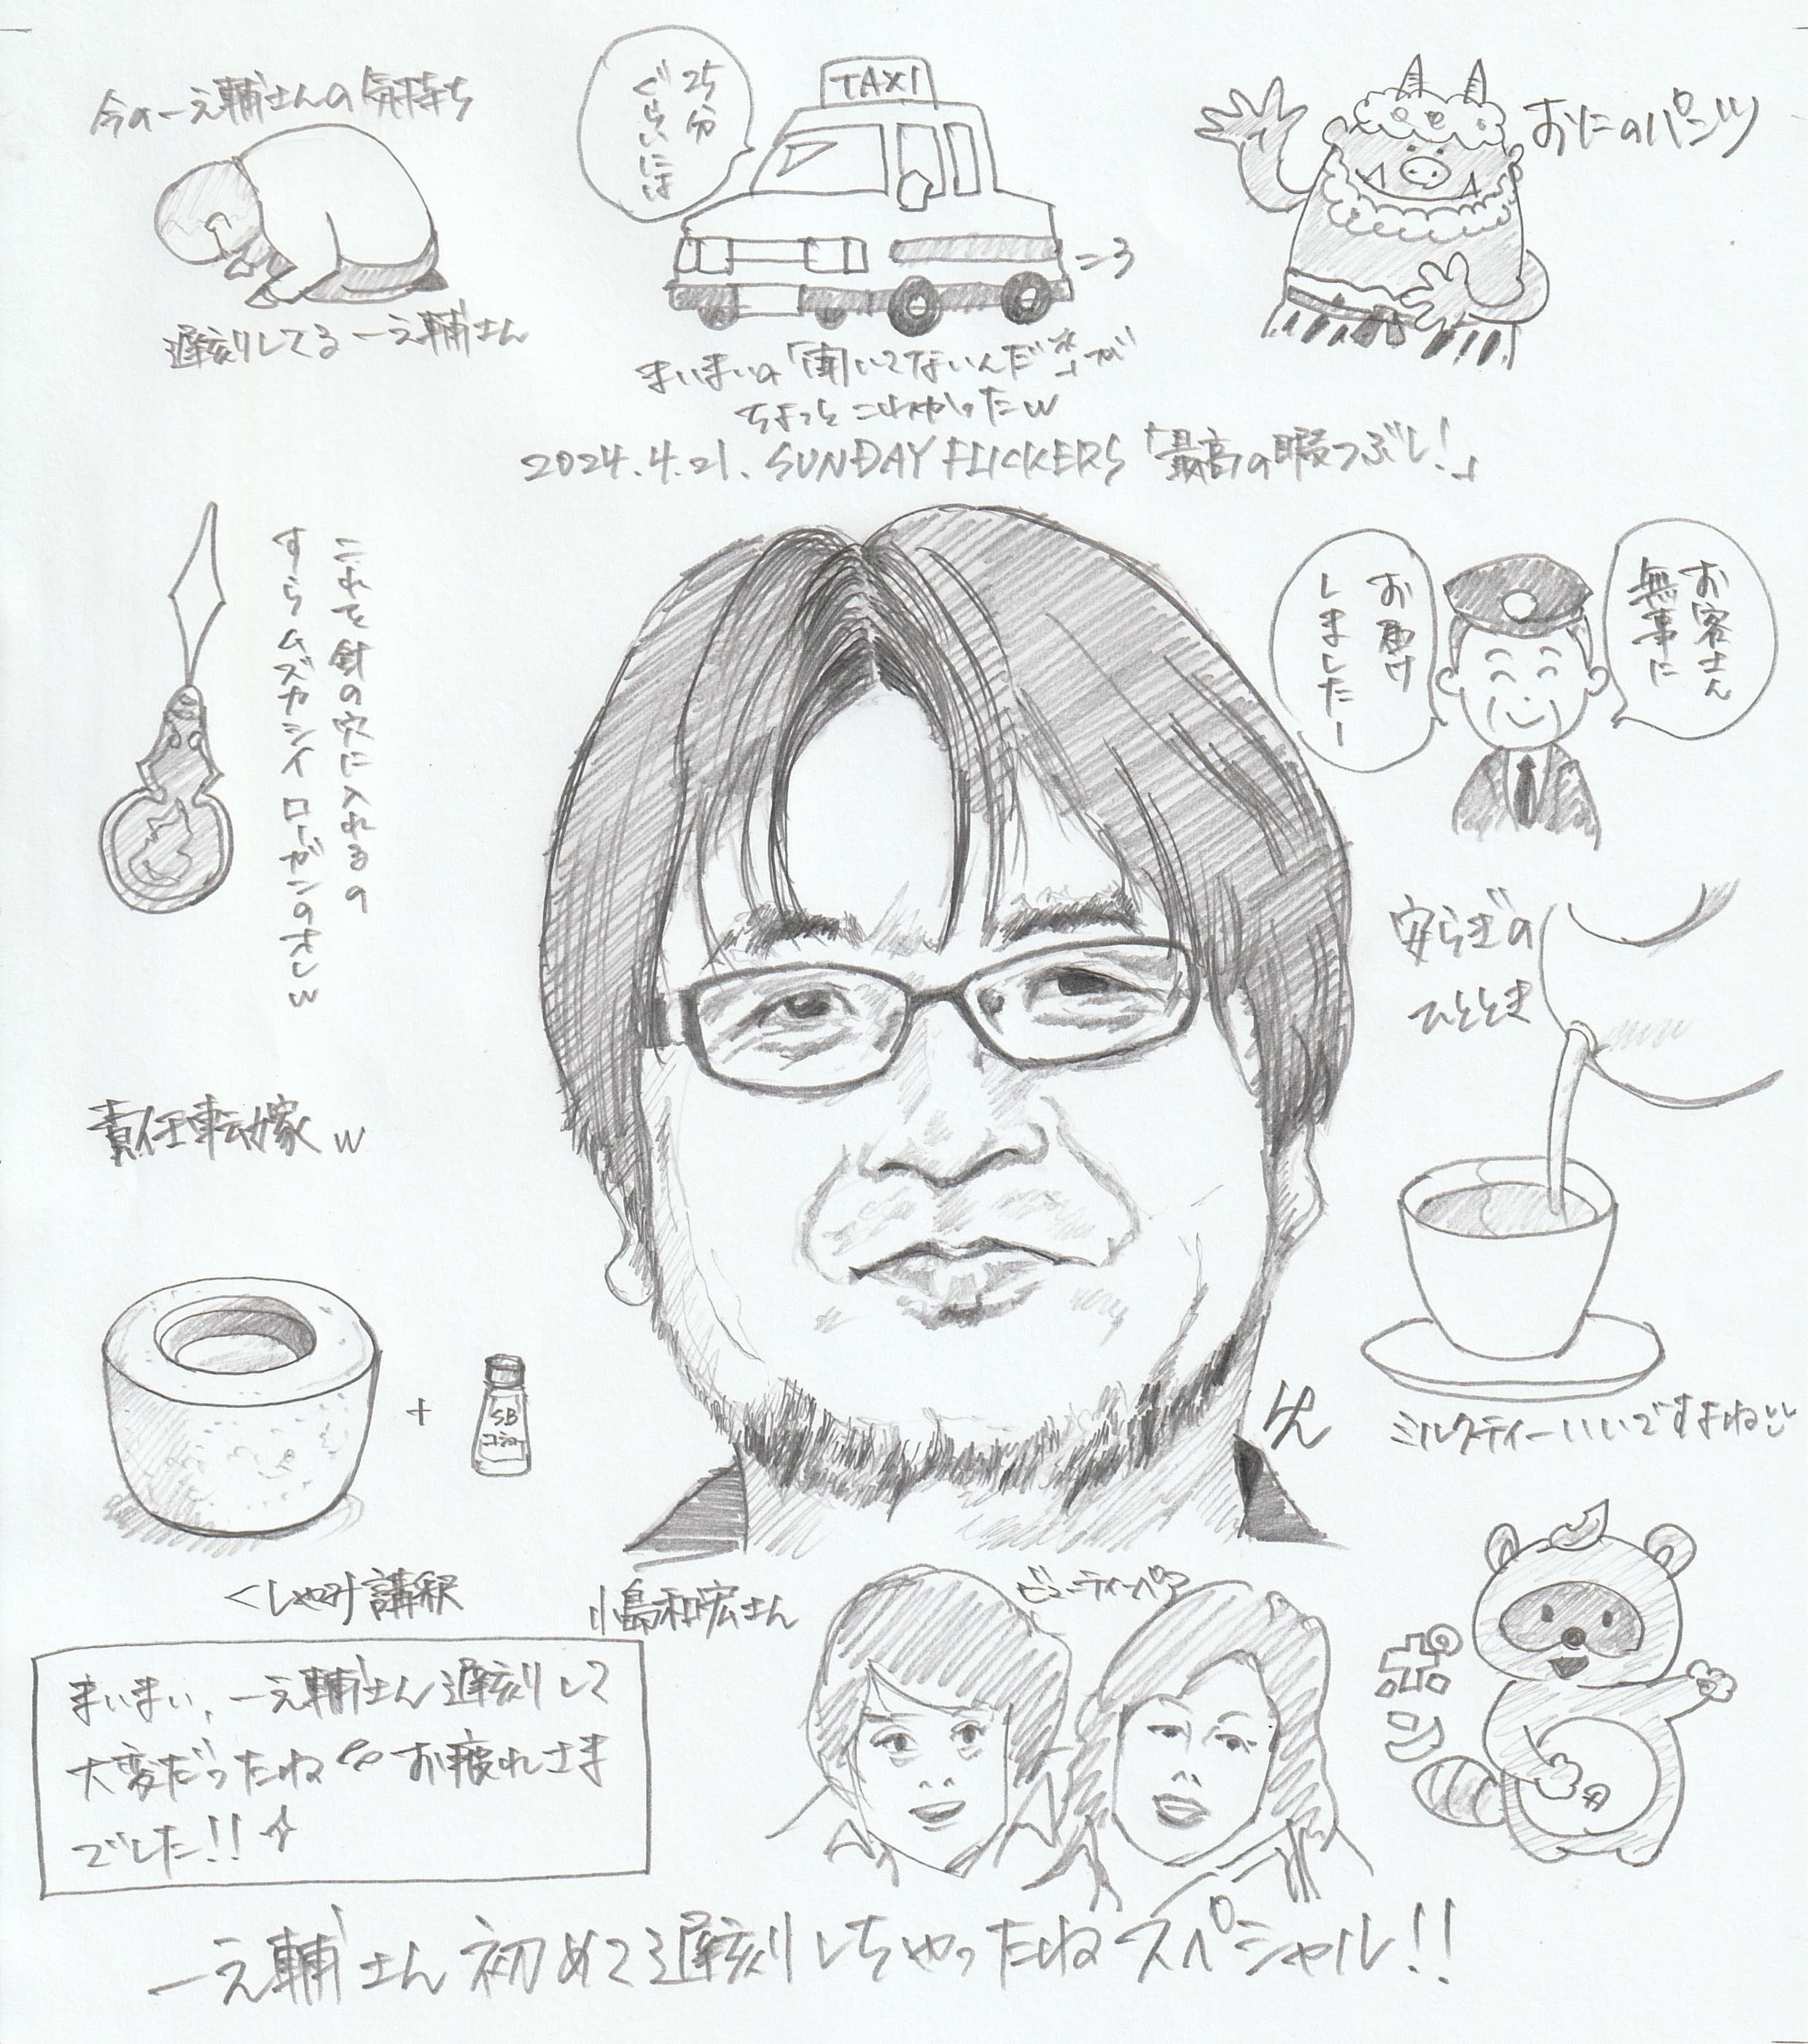 今の一之輔さんの気持ち
遅刻してる一之輔さん
25分
ぐらいには
TAXI
まいまいの「聞いてないんだ」が
ちょっとこわかったw
おにのパンツ
2024.4.21. SUNDAY FLICKERS 「最高の暇つぶし!」
これを針の穴に入れるの
すらムズカシイローガンのオレw
お客さん
無事に
お届け
しましたー
安らぎの
ひととき
ミルクティーいいですよね
責任転嫁w
+
SB
コショー
くしゃみ講釈
小島和宏さん
ビューティーペア
ポンポコ
まいまい、一之輔さん遅刻して
大変だったね お疲れさま
でした!!
一之輔さん初めて遅刻しちゃったねスペシャル!!